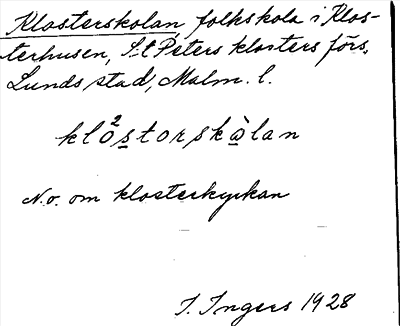 Klosterskolan, folkskola i Klos-
terhusen, S:t Peters klosters förs.
Lunds stad, Malm. l.
klò²storskòlan
N.o. om klosterkyrkan
I. Ingers 1928